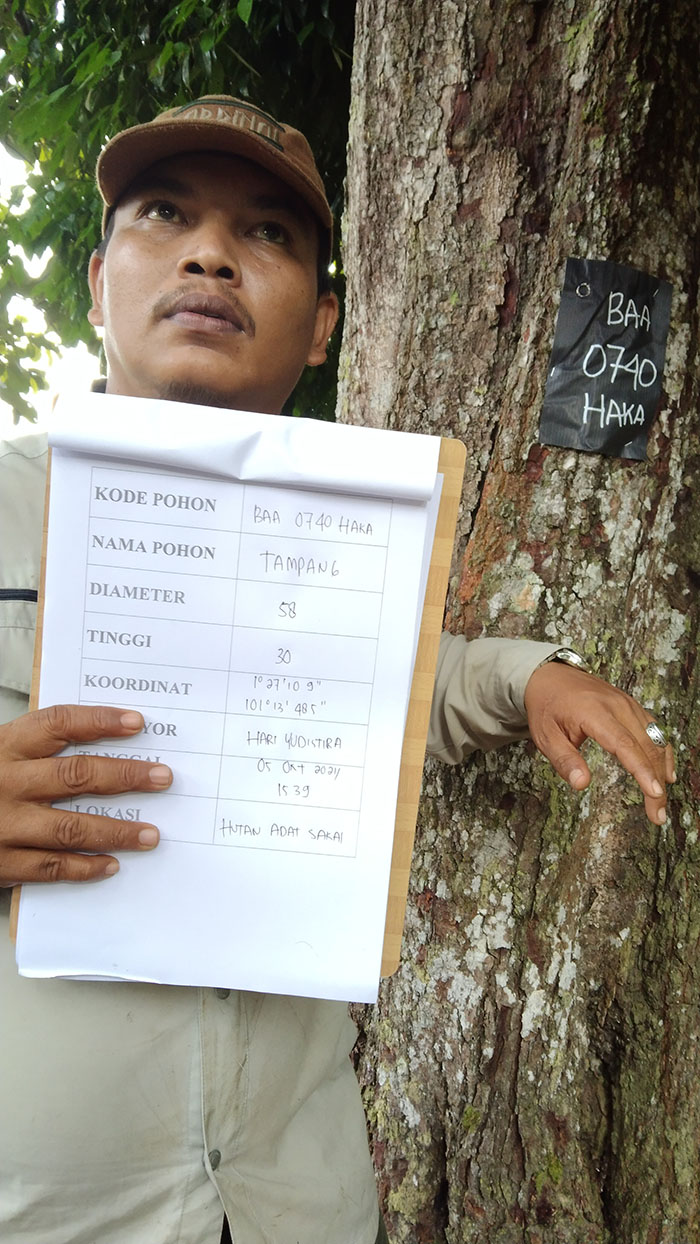 BAA
0740
HAKA
KODE POHON BAA 0740 HAKA
NAMA POHON TAMPANG
DIAMETER 58
TINGGI 30
KOORDINAT 1° 27' 10 9"
101° 13' 485"
YOR HARI YUDISTIRA
TANGGAL 05 OKT 2024
15 39
LOKASI HUTAN ADAT SAKAI